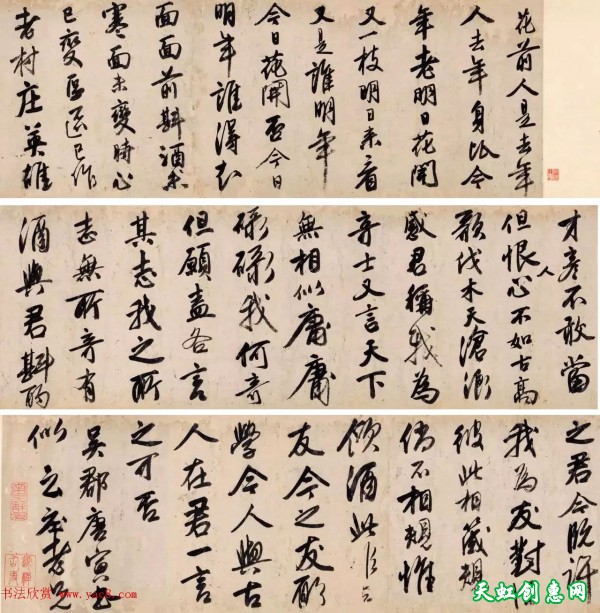 花前人是去年
人去年身比今
年老明日花開
又一枝明日来看
又是誰明年
今日花開否今日
明年誰得知
面面前斟酒未
寒面未變時心
已變區區已作
老村庄英雄
才彦不敢當
但恨人心不如古高
歌伐木天滄浪
感君稱我為
奇士又言天下
無相似庸庸
碌碌我何奇
但願盡各言
其志我之所
志無所奇有
酒與君斟酌
之君今既許
我為友對
彼此相箴規
倘不相規惟
飲酒此
友今之友
學今人與古
人在君一言
之可否
吳郡唐寅
似立庵老兄
书法欣赏 www.yac8.com
天虹创惠网